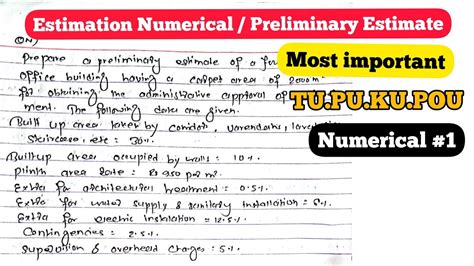 Estimation Numerical / Preliminary Estimate
Most important
TU.PU.KU.POU
Numerical #1
QN)
Prepare a preliminary estimate of a four
office building having a carpet area of 2000 m²
for obtaining the administrative approval of
ment. The following data are given.
Built up area taken by corridor, verandahs,
staircase, etc = 30%
Built up area occupied by walls = 10%
Plinth area rate = Rs 950 per m²
Extra for architectural treatment = 0.5%
Extra for water supply & sanitary installation = 5%
Extra for electric instalation = 12.5%
Contingencies = 2.5%
Supervision & overhead charges = 5%